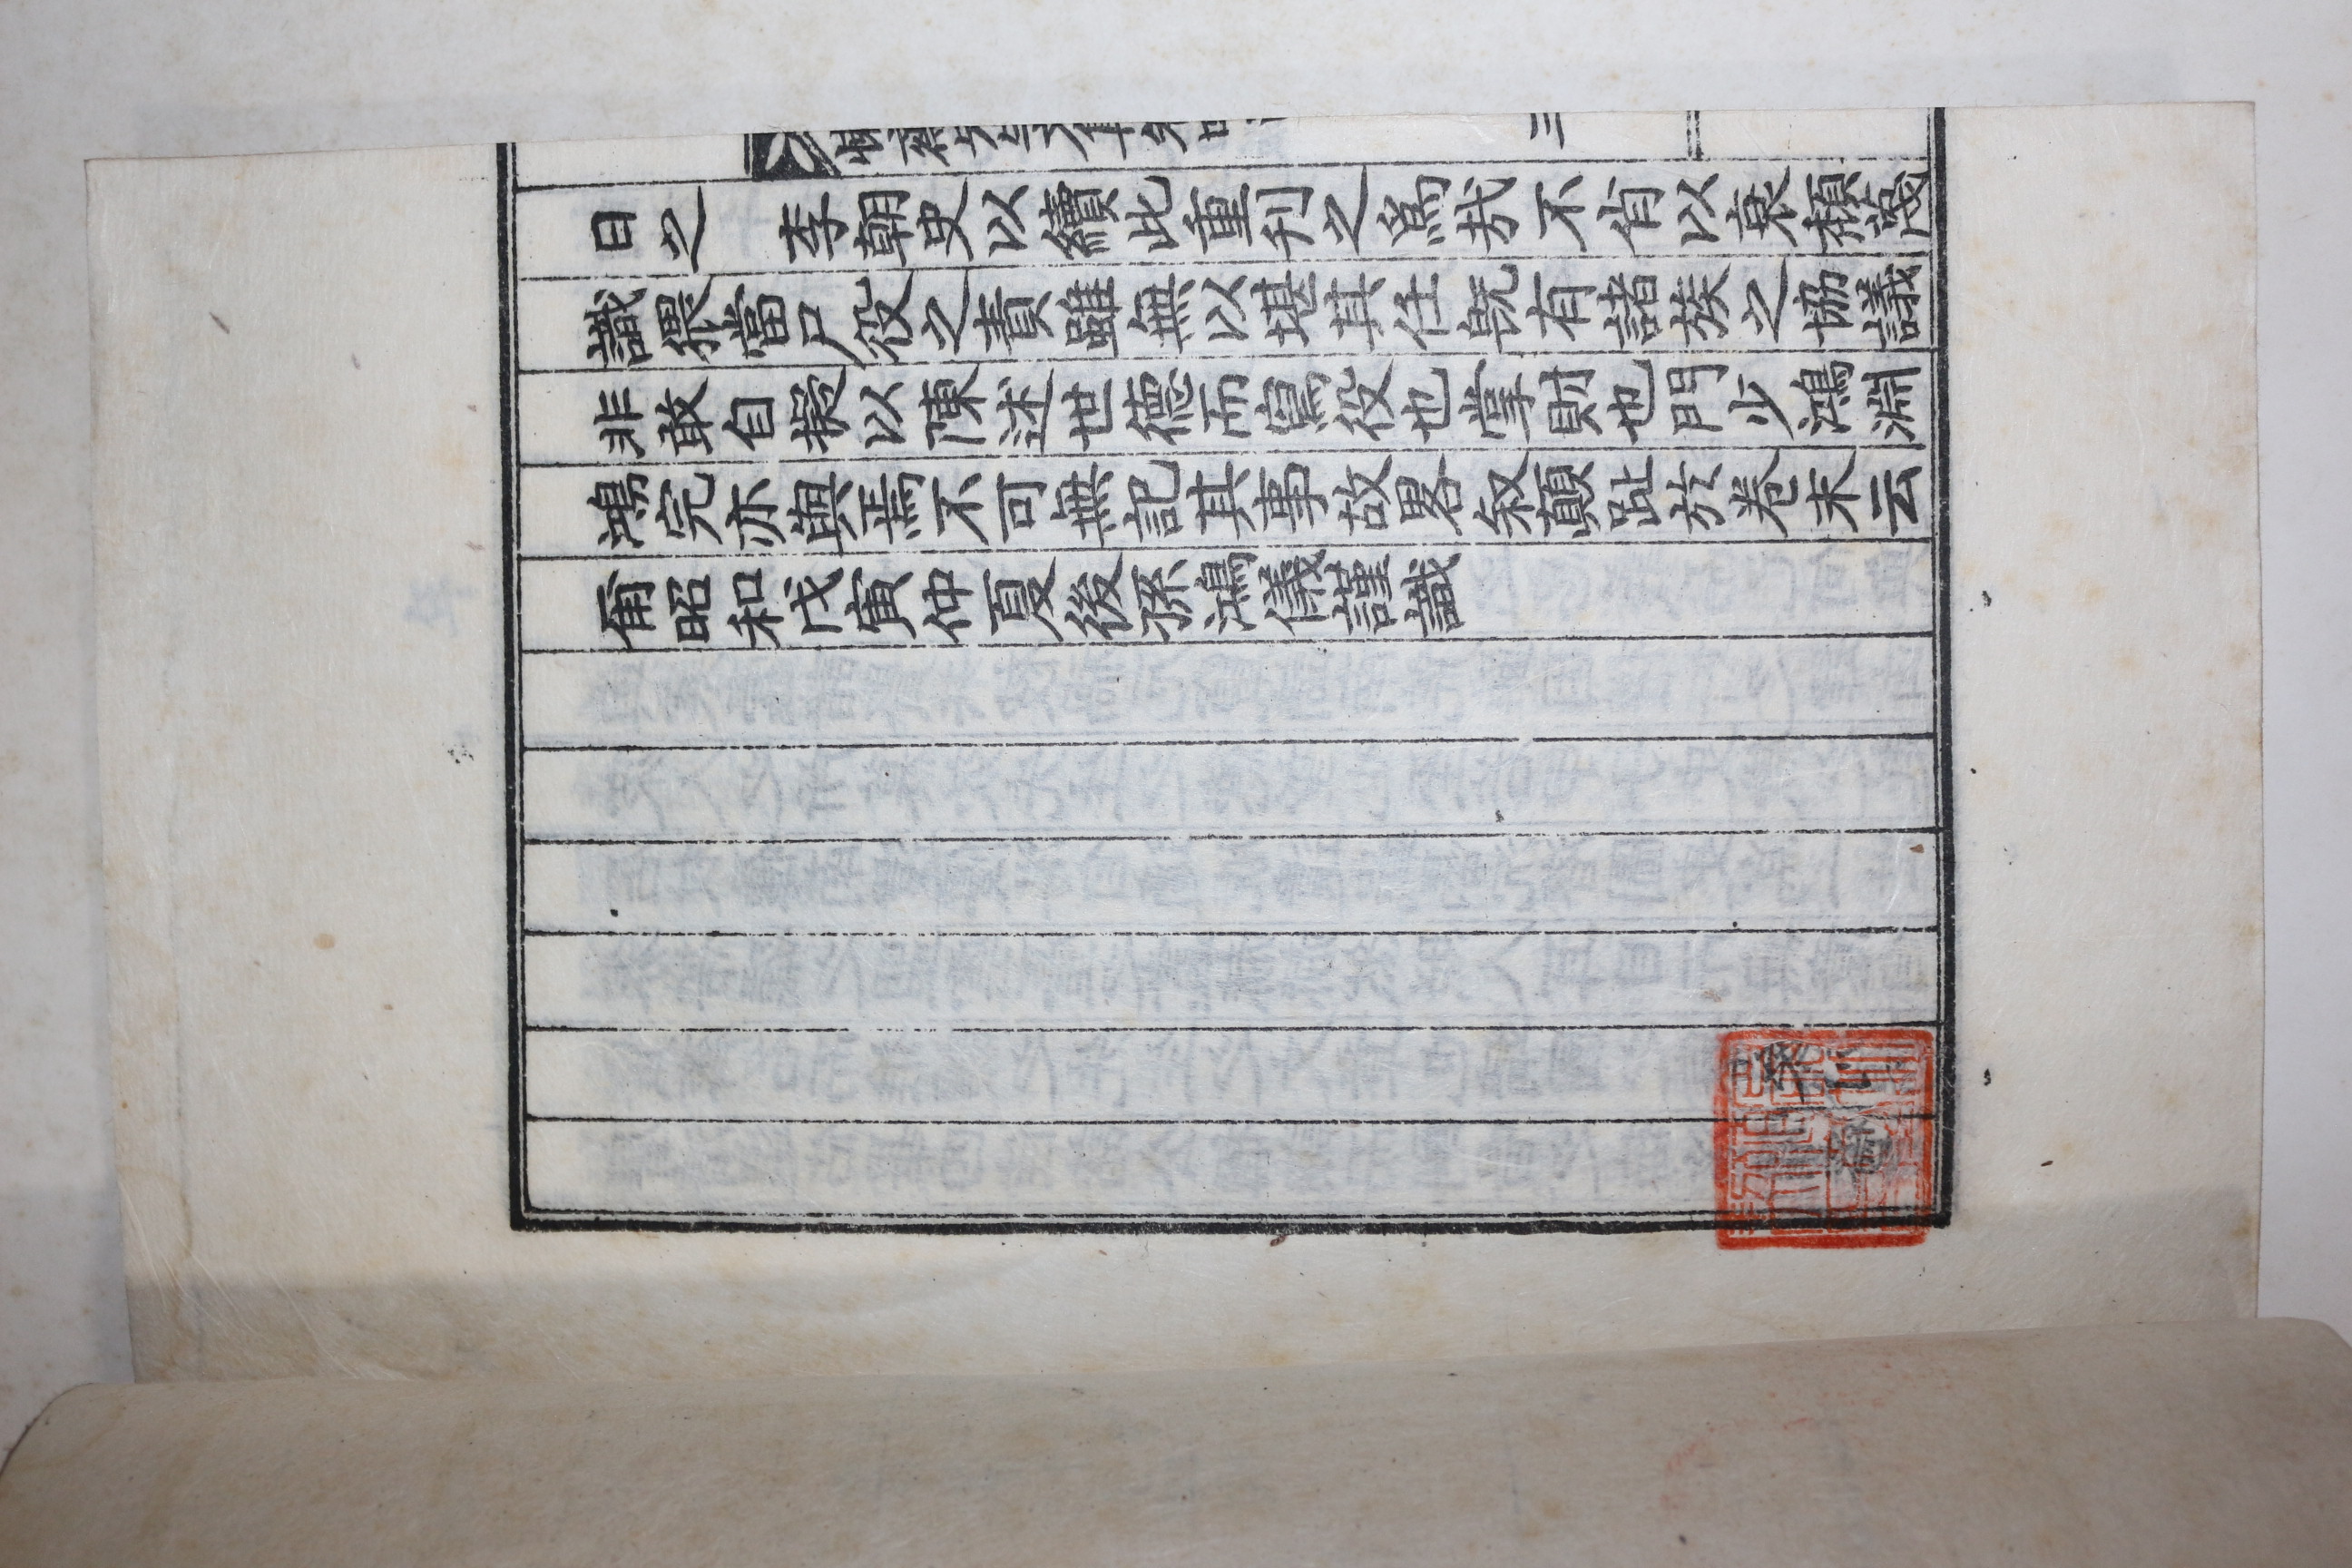 三
日之 李朝史以續此重刊之爲哉不肖以衰頹淺
識猥當尸役之責雖無以堪其任旣有諸族之協議
非敢自擬以陳述世德而寫役也掌財也門少鴻淵
鴻完亦與焉不可無記其事故畧敘顚趾於卷末云
甭昭和戊寅仲夏後孫鴻儀謹識